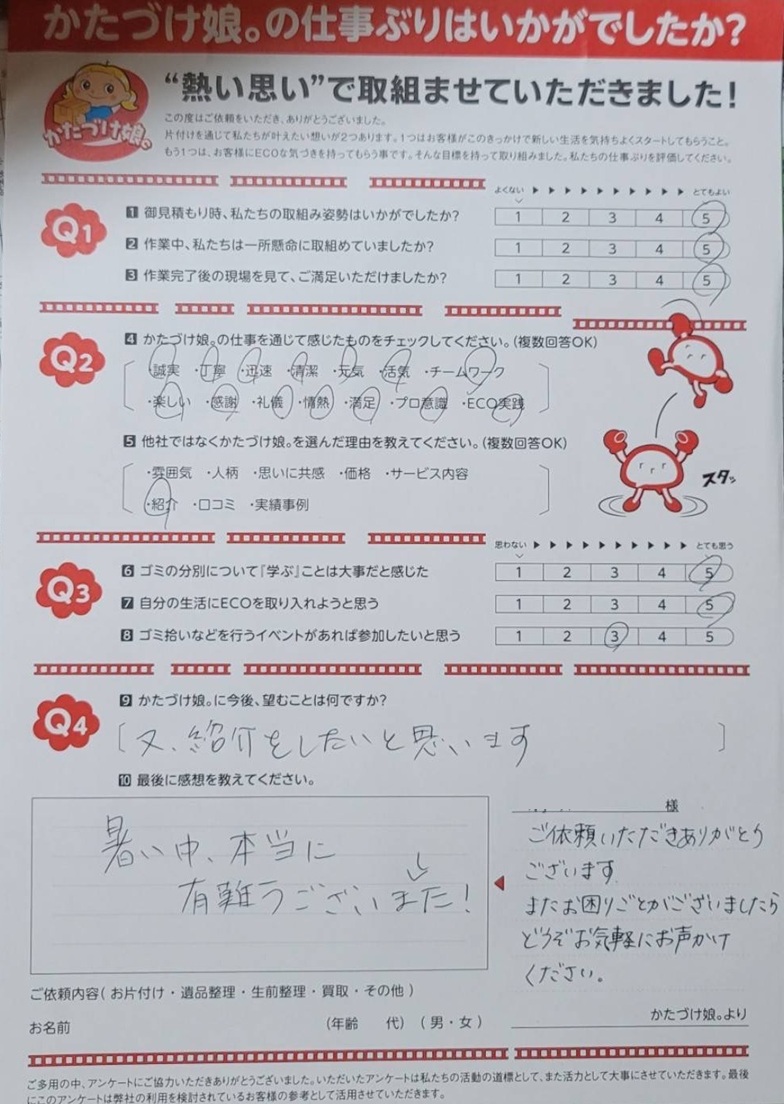 かたづけ娘。の仕事ぶりはいかがでしたか?
“熱い思い”で取組ませていただきました!
かたづけ娘。
この度はご依頼をいただき、ありがとうございました。
片付けを通じて私たちが叶えたい想いが2つあります。1つはお客様がこのきっかけで新しい生活を気持ちよくスタートしてもらうこと。
もう1つは、お客様にECOな気づきを持ってもらう事です。そんな目標を持って取り組みました。私たちの仕事ぶりを評価してください。
よくない ▶ ▶ ▶ ▶ ▶ ▶ ▶ ▶ ▶ ▶ とてもよい
Q1
1 御見積もり時、私たちの取組み姿勢はいかがでしたか? 1 2 3 4 5
2 作業中、私たちは一所懸命に取組めていましたか? 1 2 3 4 5
3 作業完了後の現場を見て、ご満足いただけましたか? 1 2 3 4 5
Q2
4 かたづけ娘。の仕事を通じて感じたものをチェックしてください。(複数回答OK)
・誠実 ・丁寧 ・迅速 ・清潔 ・元気 ・活気 ・チームワーク
・楽しい ・感謝 ・礼儀 ・情熱 ・満足 ・プロ意識 ・ECO実践
5 他社ではなくかたづけ娘。を選んだ理由を教えてください。(複数回答OK)
・雰囲気 ・人柄 ・思いに共感 ・価格 ・サービス内容
・紹介 ・口コミ ・実績事例
スタッ
思わない ▶ ▶ ▶ ▶ ▶ ▶ ▶ ▶ ▶ ▶ とても思う
Q3
6 ゴミの分別について『学ぶ』ことは大事だと感じた 1 2 3 4 5
7 自分の生活にECOを取り入れようと思う 1 2 3 4 5
8 ゴミ拾いなどを行うイベントがあれば参加したいと思う 1 2 3 4 5
Q4
9 かたづけ娘。に今後、望むことは何ですか?
又、紹介をしたいと思います
10 最後に感想を教えてください。
暑い中、本当に
有難うございました!
様
ご依頼いただきありがとう
ございます
またお困りごとがございましたら
どうぞお気軽にお声がけ
ください。
かたづけ娘。より
ご依頼内容( お片付け・遺品整理・生前整理・買取・その他 )
お名前 (年齢 代) ( 男・女 )
ご多用の中、アンケートにご協力いただきありがとうございました。いただいたアンケートは私たちの活動の道標として、また活力として大事にさせていただきます。最後
にこのアンケートは弊社の利用を検討されているお客様の参考として活用させていただきます。